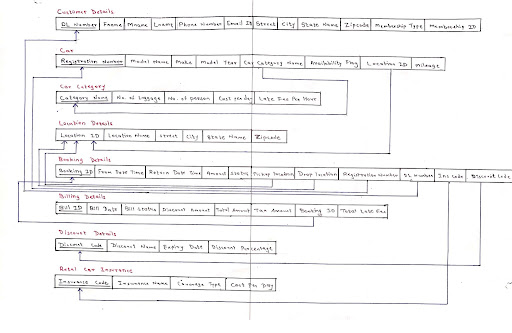 Customer Details
DL Number Fname Mname Lname Phone Number Email ID Street City State Name Zipcode Membership Type Membership ID
Car
Registration Number Model Name Make Model Year Car Category Name Availability Flag Location ID Mileage
Car Category
Category Name No. of Luggage No. of person Cost per day Late Fee Per Hour
Location Details
Location ID Location Name Street City State Name Zipcode
Booking Details
Booking ID From Date Time Return Date Time Amount Status Pickup Location Drop Location Registration Number DL Number Ins Code Discount Code
Billing Details
Bill ID Bill Date Bill Status Discount Amount Total Amount Tax Amount Booking ID Total Late Fee
Discount Details
Discount Code Discount Name Expiry Date Discount Percentage
Rental Car Insurance
Insurance Code Insurance Name Coverage Type Cost Per Day